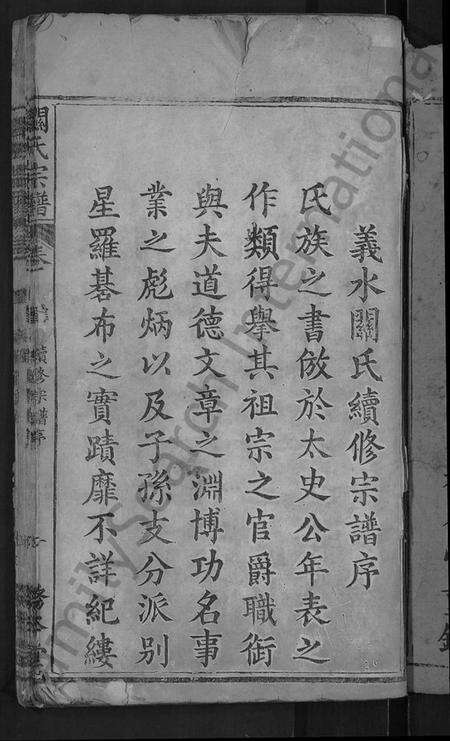 義水關氏續修宗譜序
氏族之書倣於太史公年表之
作類得舉其祖宗之官爵職銜
與夫道德文章之淵博功名事
業之彪炳以及子孫支分派別
星羅碁布之實蹟靡不詳紀縷
關氏宗譜
卷
續修宗譜序
FamilySearch International